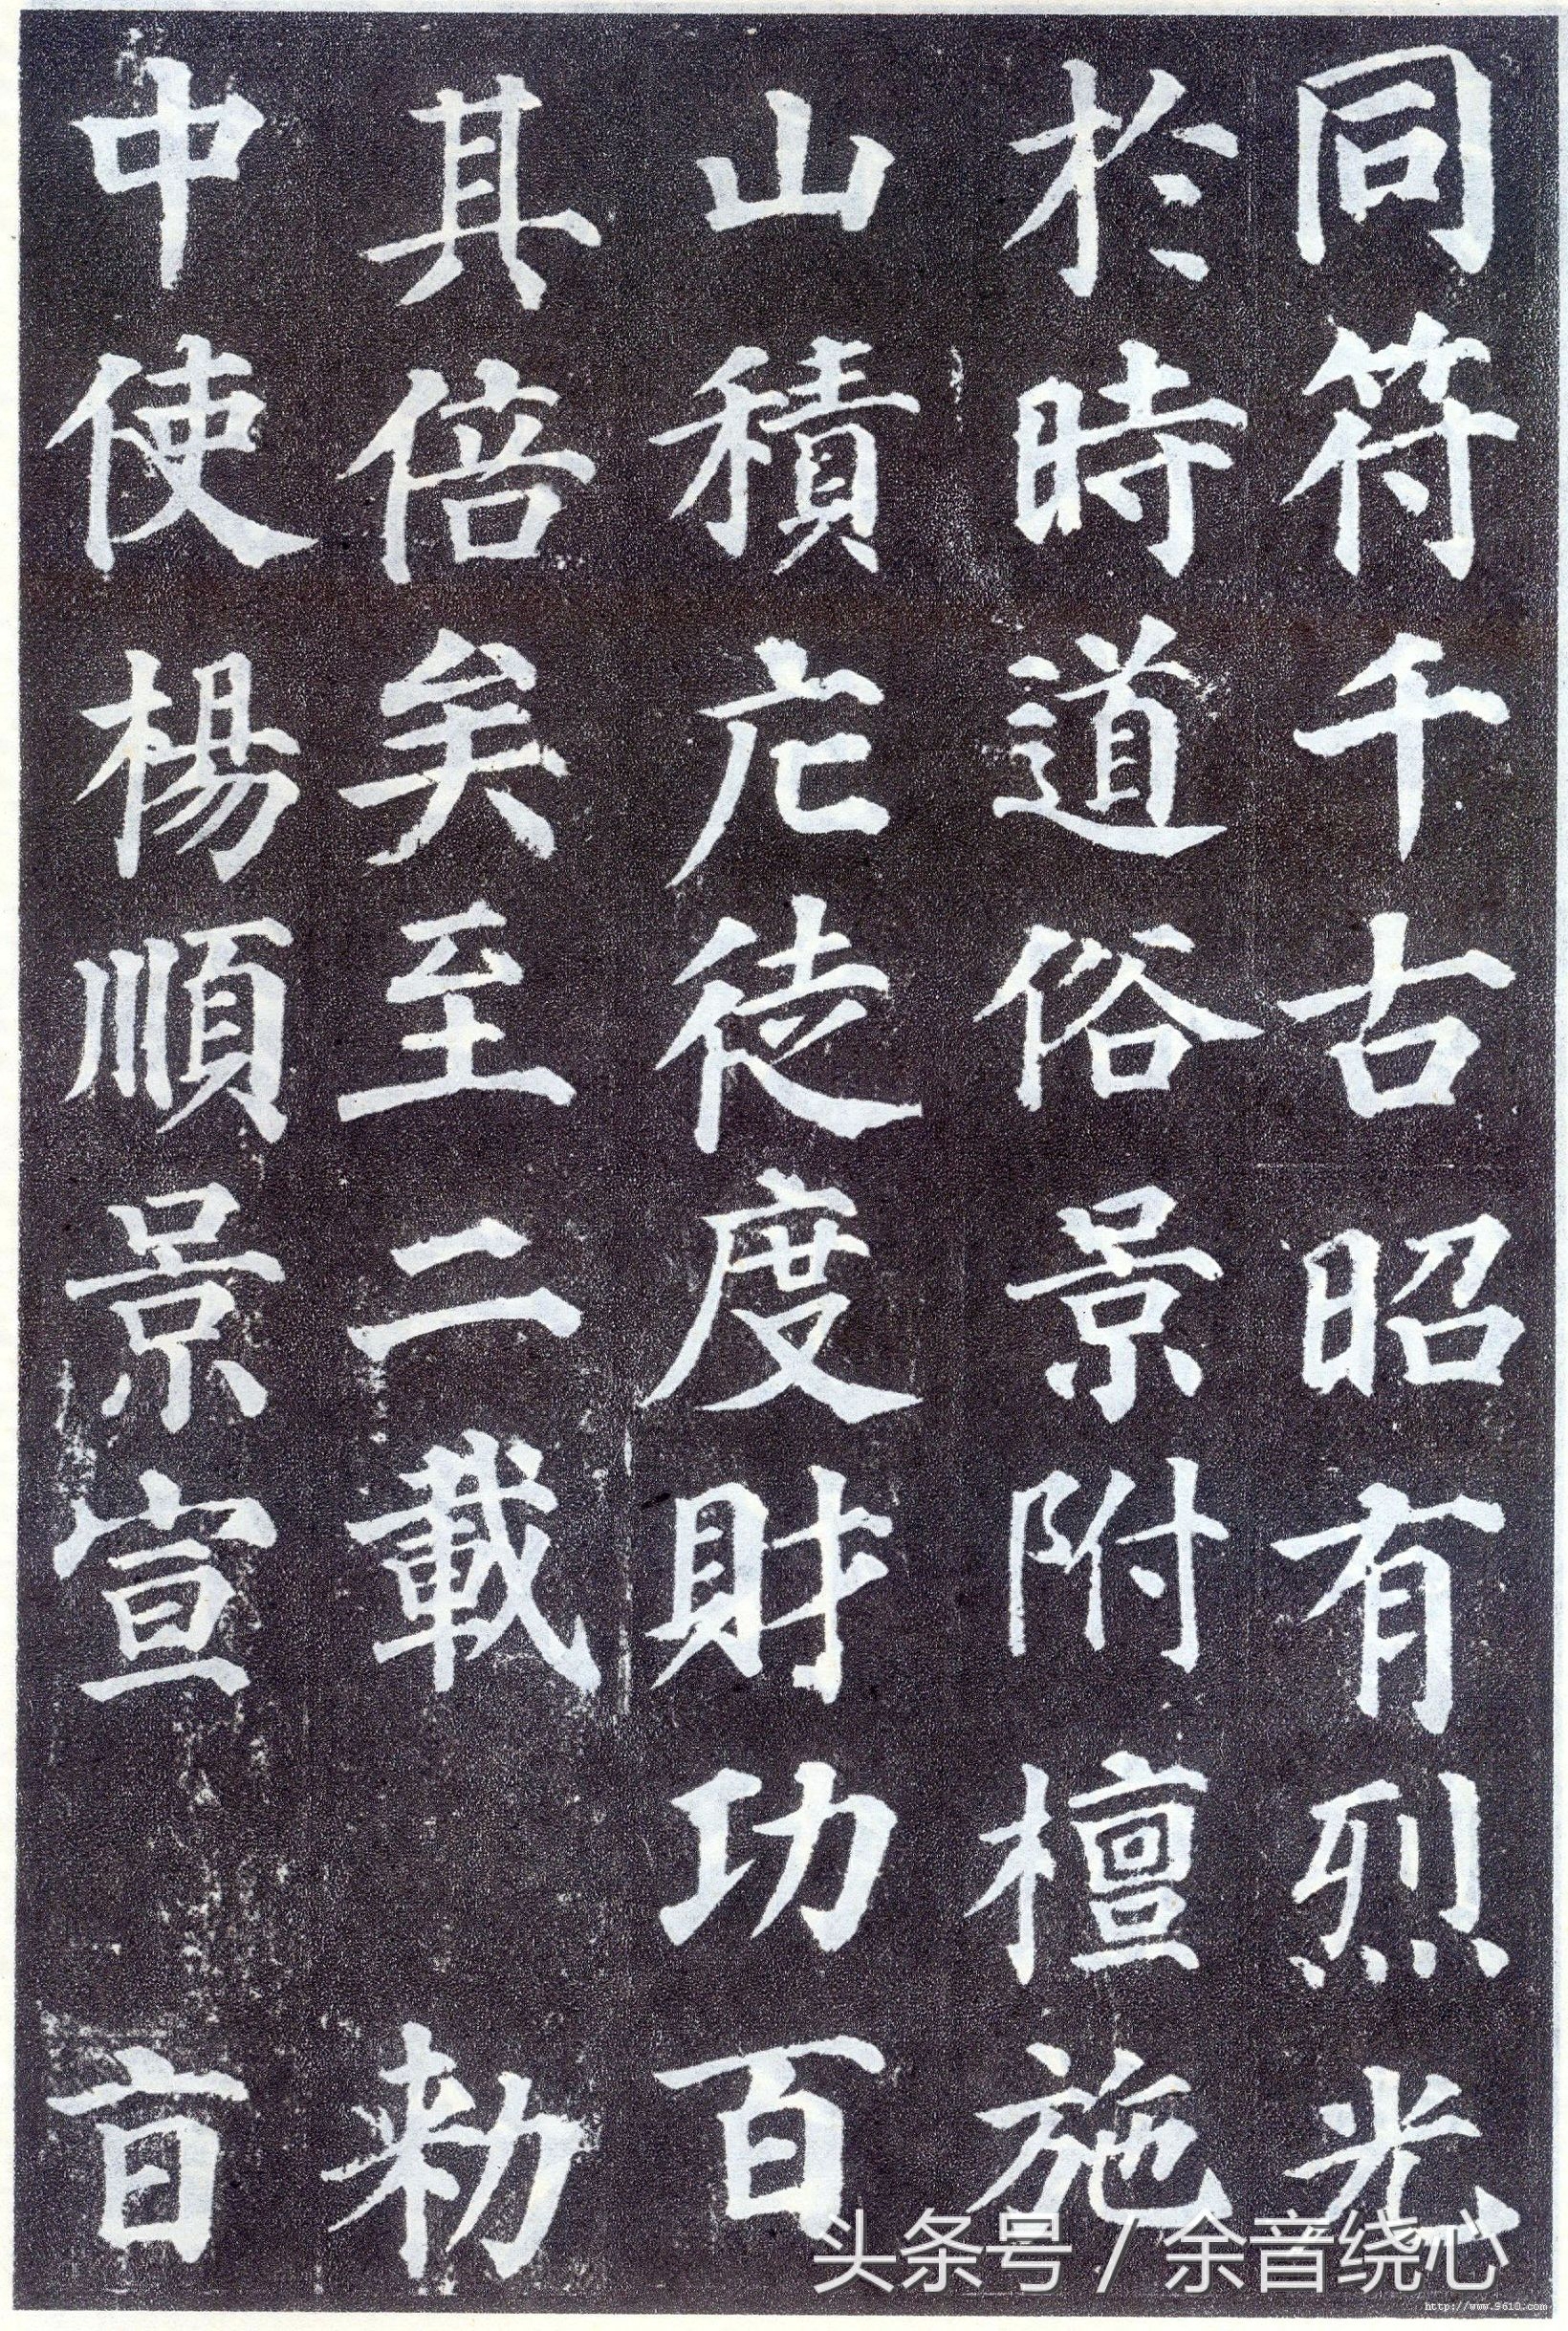 同符千古昭有烈光
於時道俗景附檀施
山積庀徒度財功百
其倍矣至二載 勅
中使楊順景宣 旨
头条号 / 余音绕心
http://www.9610.com